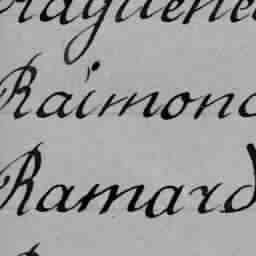 Raguene
Raimond
Ramard